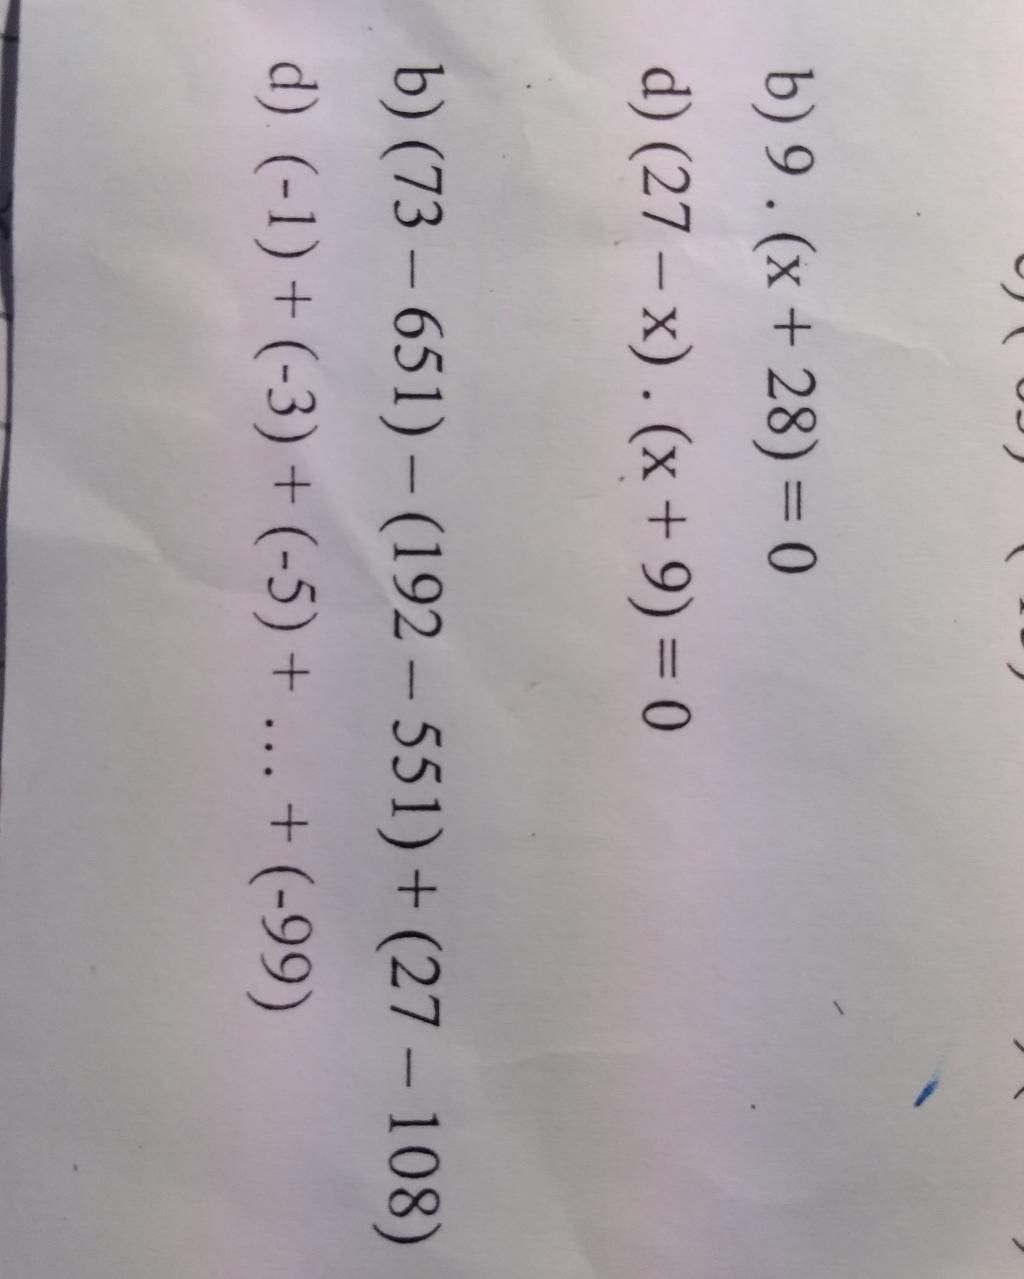 b) 9 . (x + 28) = 0
d) (27 – x) . (x + 9) = 0
b) (73 – 651) – (192 – 551) + (27 – 108)
d) (-1) + (-3) + (-5) + ... + (-99)